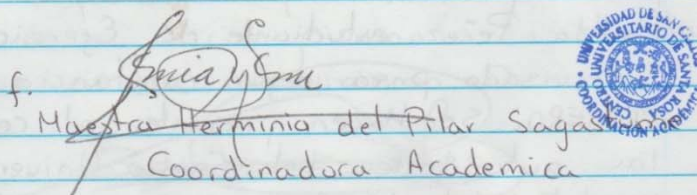 f.
Maestra Herminia del Pilar
Coordinadora Academica
UNIVERSIDAD DE SAN
CENTRO UNIVERSITARIO DE SANTA ROSA
COORDINACIÓN